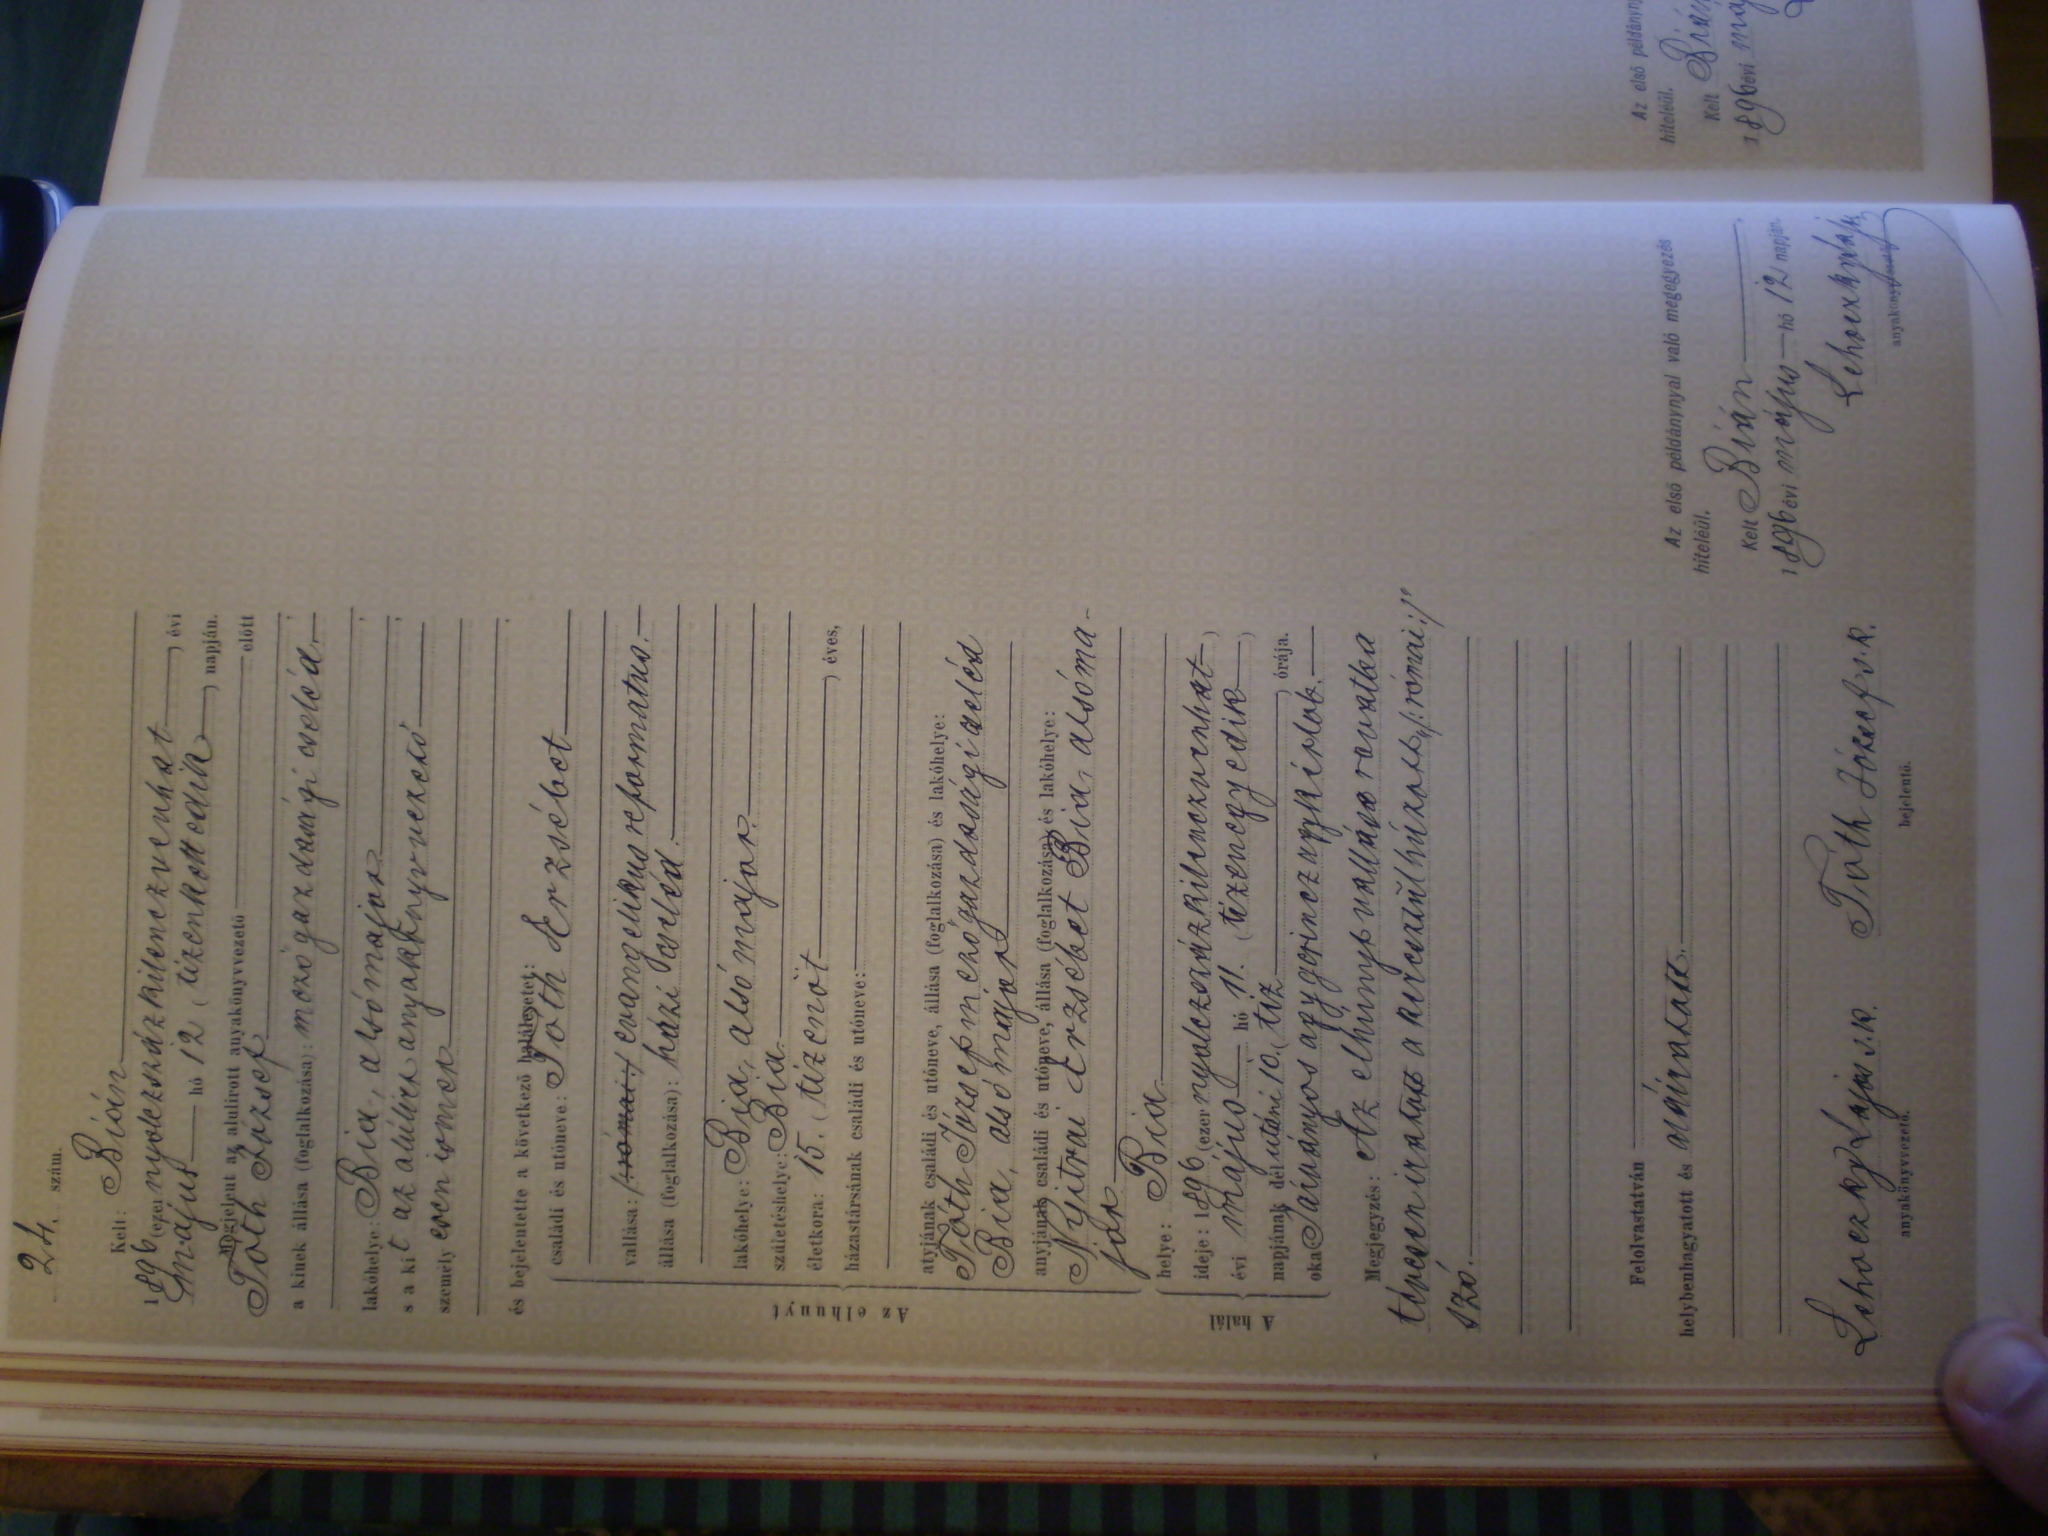 24. szám.
Kelt: Bián
1896 (ezer nyolczszázkilenczvenhat) évi
május hó 12 (tizenkettedik) napján.
Megjelent az alulirott anyakönyvvezető előtt
Tóth József
a kinek állása (foglalkozása): mezőgazdasági cseléd.
lakóhelye: Bia, alsómajor
s a kit az alulírt anyakönyvvezető
személyesen ismer
és bejelentette a következő halálesetet:
Az elhunyt
családi és utóneve: Tóth Erzsébet
vallása: /:római:/ evangelikus reformatus.
állása (foglalkozása): házi cseléd.
lakóhelye: Bia, alsómajor.
születéshelye: Bia.
életkora: 15. (tizenöt) éves,
házastársának családi és utóneve:
atyjának családi és utóneve, állása (foglalkozása) és lakóhelye:
Tóth József mezőgazdasági cseléd
Bia, alsómajor
anyjának családi és utóneve, állása (foglalkozása) és lakóhelye:
Nyitrai Erzsébet Bia, alsóma-
jor
A halál
helye: Bia.
ideje: 1896 (ezer nyolczszázkilenczvenhat)
évi május hó 11. (tizenegyedik)
napjának délutáni 10. (tiz) órája.
oka: Járványos agygerinczagykérlob.
Megjegyzés: Az elhunyt vallása rovatka
tévesen iratott a keresztülhúzott „/:római:/"
szó.
Felolvastatván
helybenhagyatott és aláiratott.
Lehoczky Lajos s.k.
anyakönyvvezető.
Tóth József s.k.
bejelentő.
Az első példánynyal való megegyezés
hiteléül.
Kelt Bián
1896 évi május hó 12 napján.
Lehoczky Lajos
Az első példányny
hiteléül.
Kelt
1896 évi